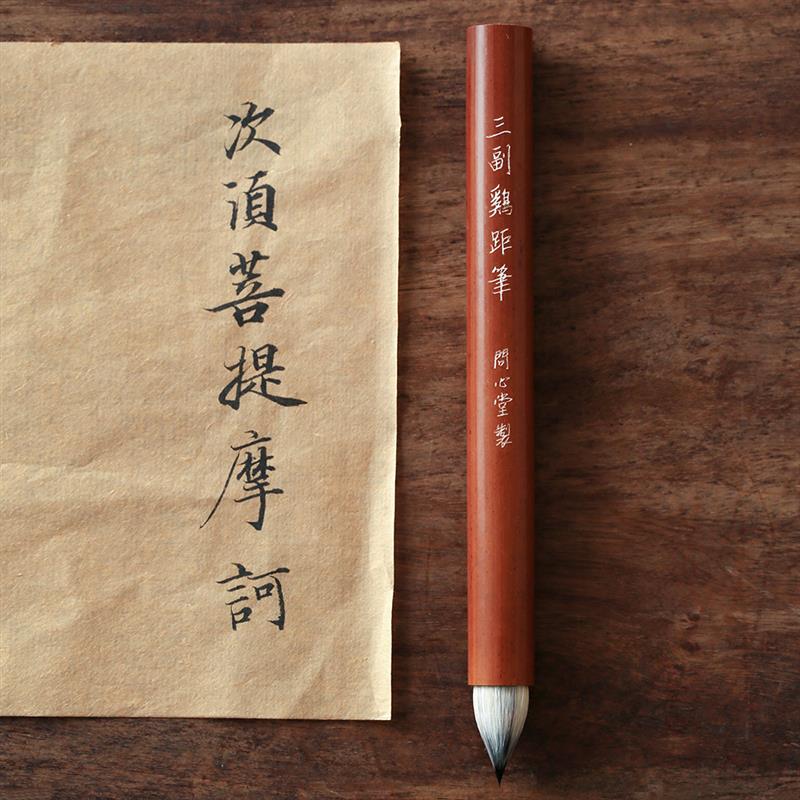 次湏菩提摩訶
三副鷄距筆 問心堂製